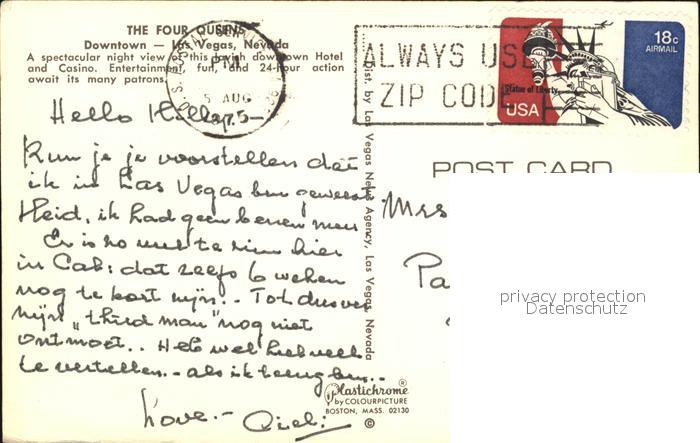 THE FOUR QUEENS
Downtown — Las Vegas, Nevada
A spectacular night view of this lavish downtown Hotel
and Casino. Entertainment, fun, and 24-hour action
await its many patrons.
PM
5 AUG
1975
ALWAYS USE
ZIP CODE
18c
AIRMAIL
Statue of Liberty
USA
Hello
Kun je je voorstellen dat
ik in Las Vegas ben geweest
Heid, ik had geen benen meer
Er is zo veel te zien hier
in Cal: dat zelfs 6 weken
nog te kort zijn!.. Tot dusver
mijn "third man" nog niet
ontmoet.. Heb wel heel veel
te vertellen.. als ik terug ben..
Love.-
Dist. by Las Vegas News Agency, Las Vegas, Nevada
POST CARD
Mrs
Pa
privacy protection
Datenschutz
Plastichrome®
by COLOURPICTURE
BOSTON, MASS. 02130
©